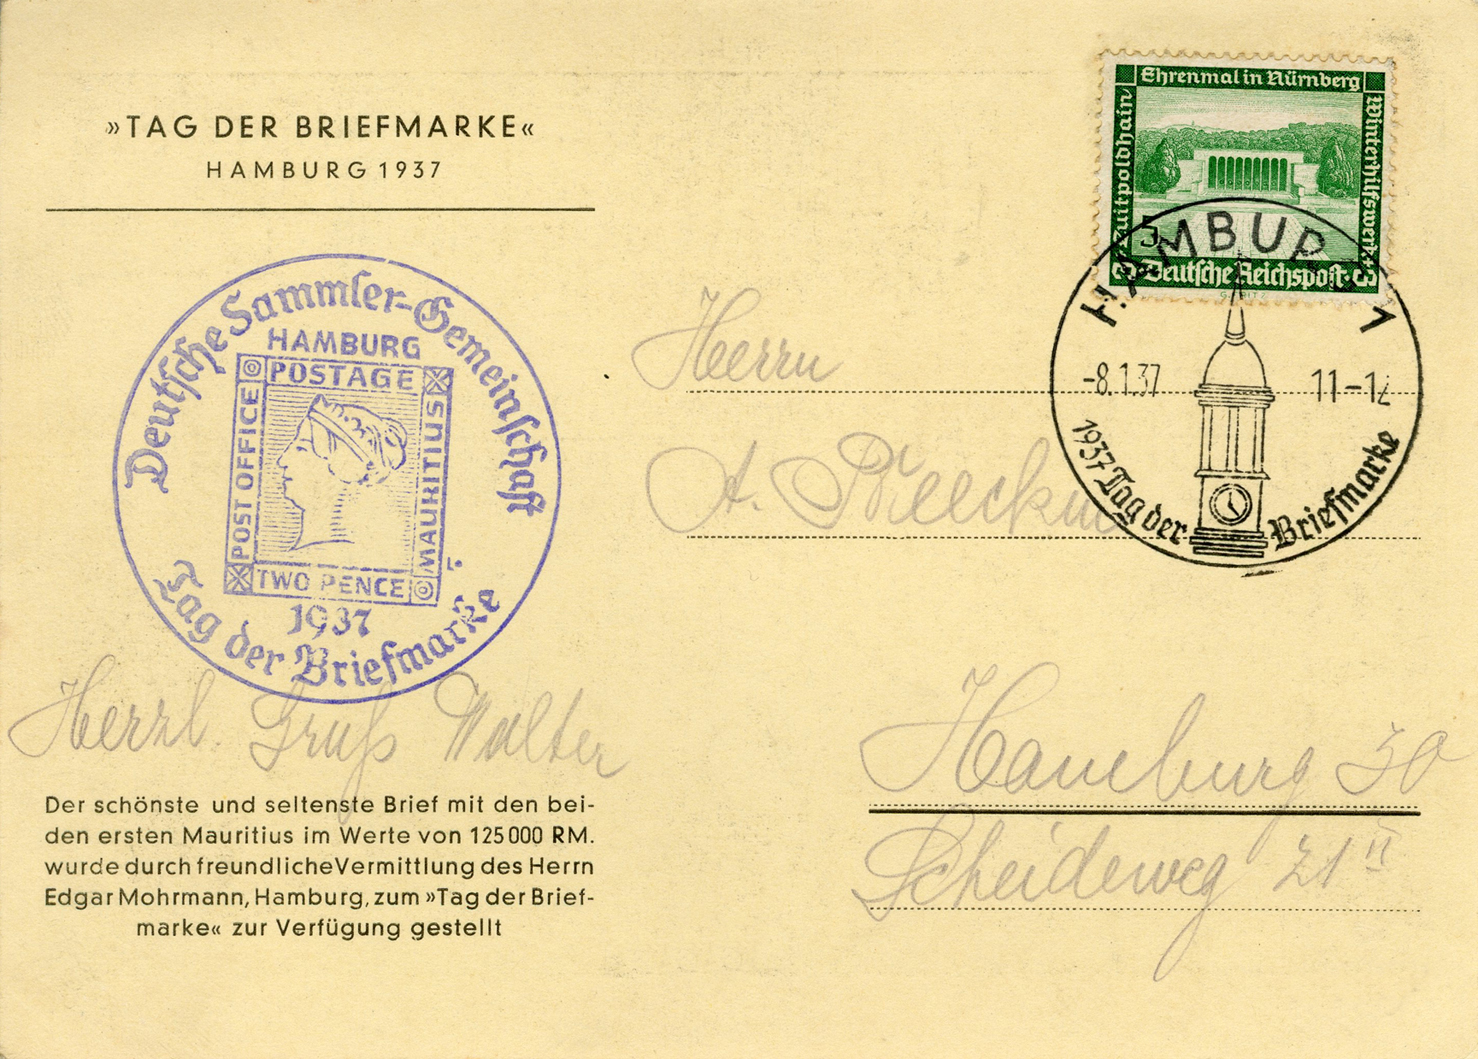 »TAG DER BRIEFMARKE«
HAMBURG 1937
Deutsche Sammler-Gemeinschaft
HAMBURG
POSTAGE
POST OFFICE
MAURITIUS
TWO PENCE
L.
1937
Tag der Briefmarke
Herzl. Gruß Walter
Der schönste und seltenste Brief mit den bei-
den ersten Mauritius im Werte von 125000 RM.
wurde durch freundliche Vermittlung des Herrn
Edgar Mohrmann, Hamburg, zum »Tag der Brief-
marke« zur Verfügung gestellt
Ehrenmal in Nürnberg
Luitpoldhain
Winterhilfswerk
3 Deutsche Reichspost 3
HAMBURG 1
-8.1.37 11-12
1937 Tag der Briefmarke
Herrn
A.
Hamburg 30
Scheideweg 21 II